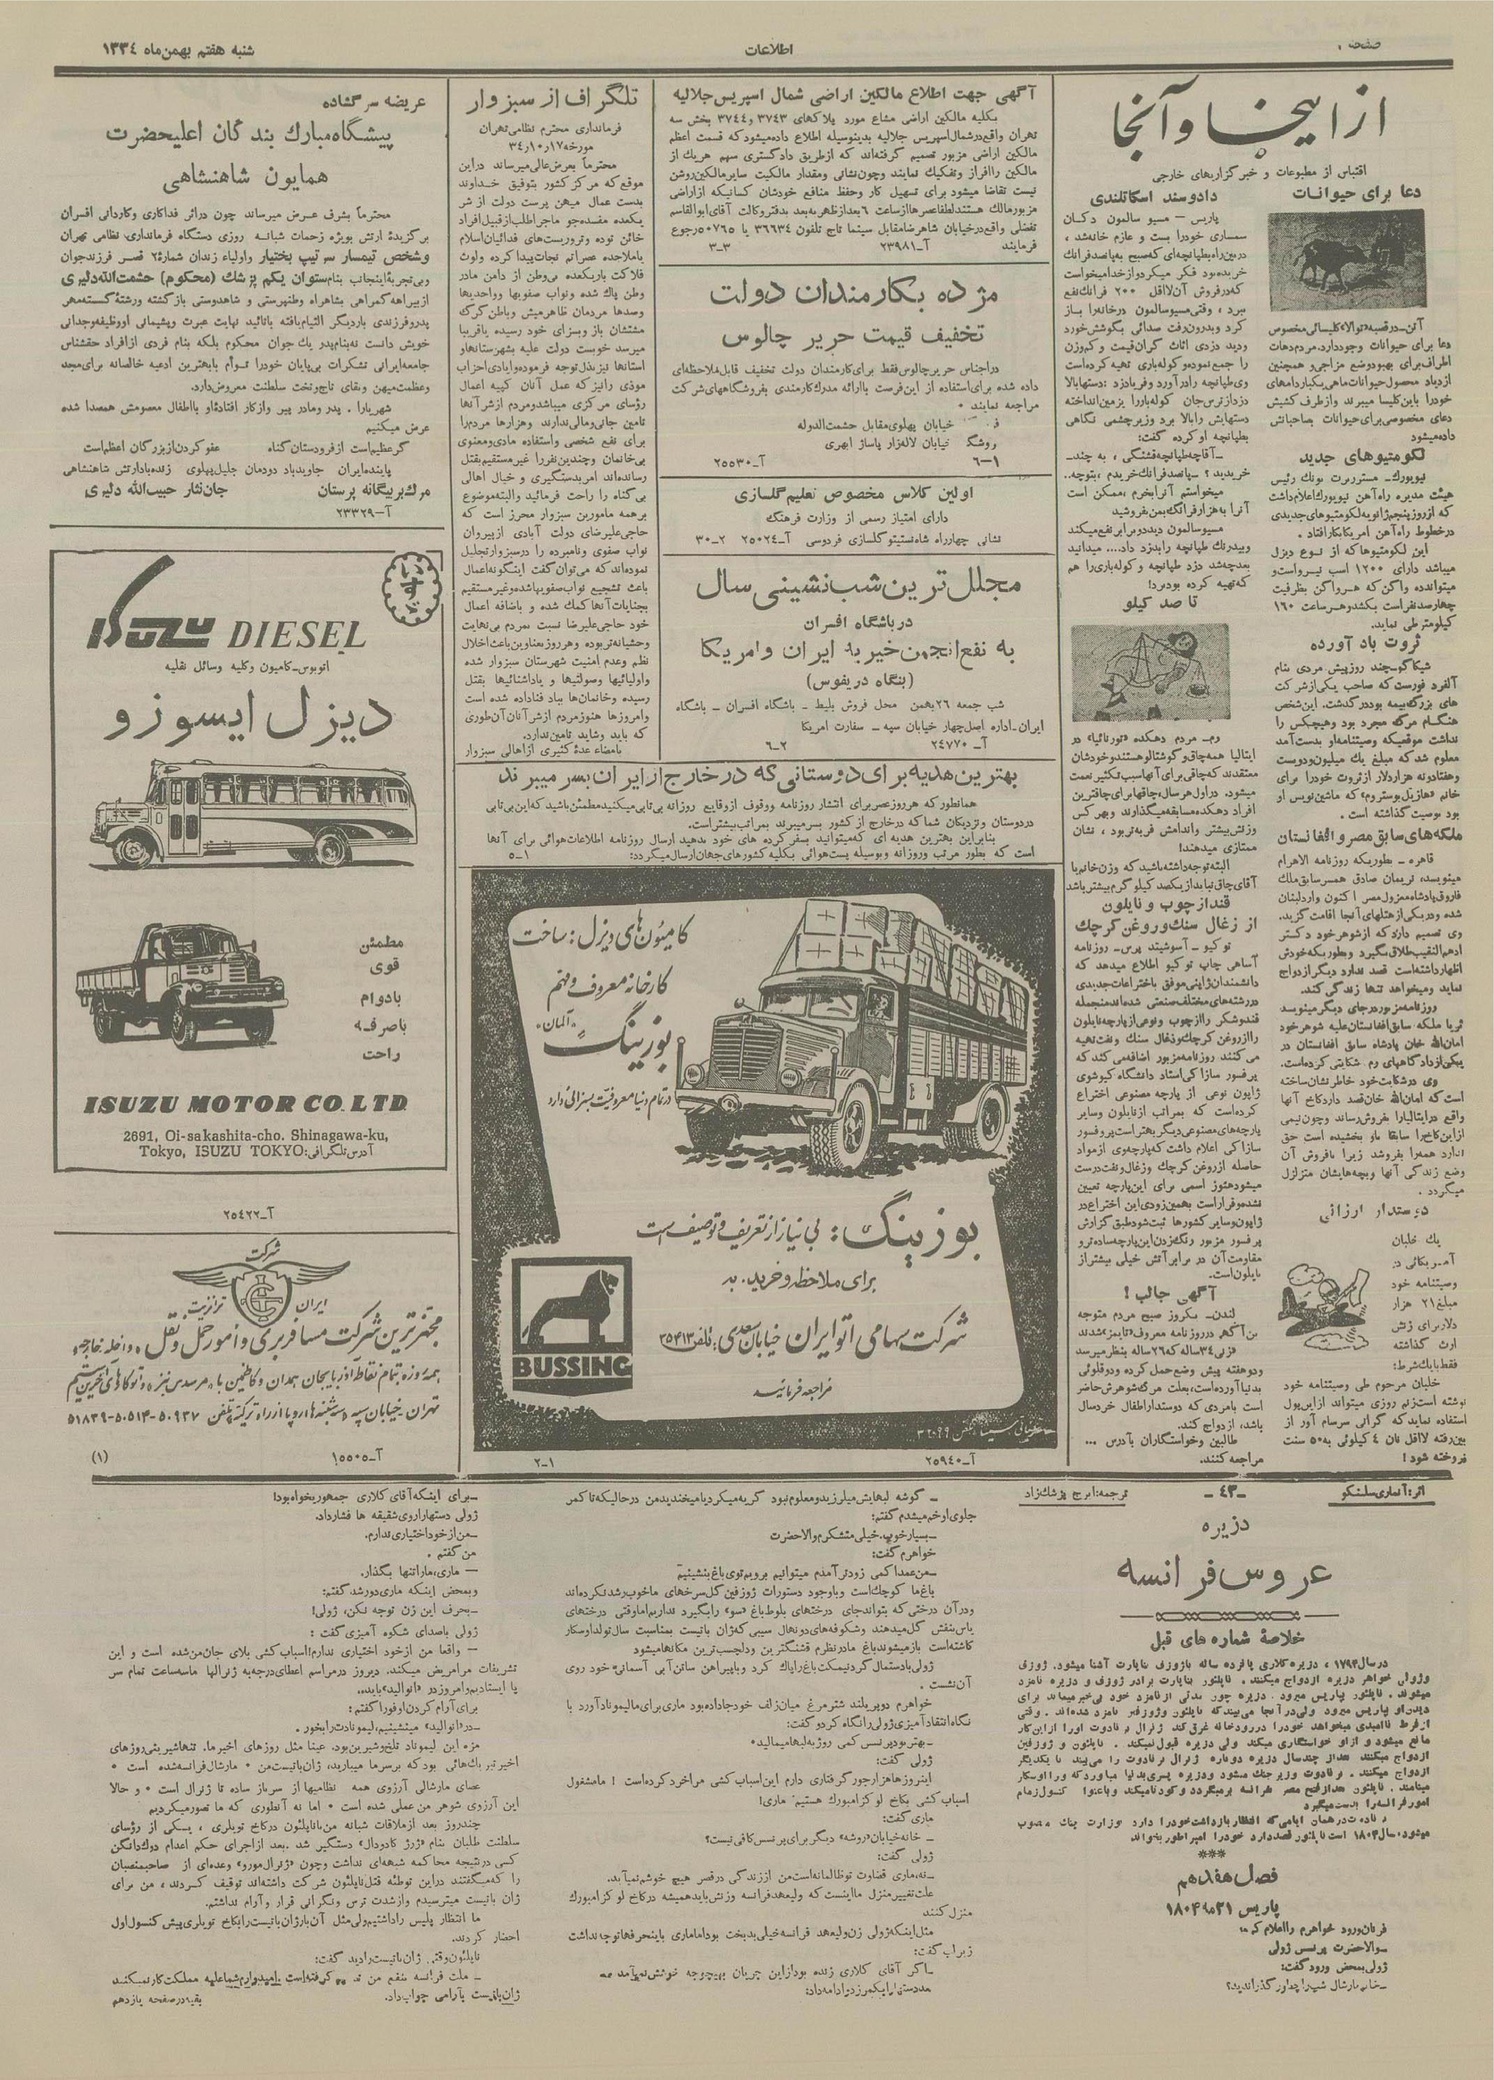 صفحه
اطلاعات
شنبه هفتم بهمن‌ماه ۱۳۳٤
از اینجا و آنجا
اقتباس از مطبوعات و خبرگزاریهای خارجی
دعا برای حیوانات
دعا برای حیوانات وجود دارد. مردم دهات
اطراف برای بهبود وضع مزاجی و همچنین
ازدیاد محصول حیوانات ماهی یکبار دامهای
خودرا باین کلیسا میبرند و از طرف کشیش
دعای مخصوصی برای حیوانات بصاحبانش
داده میشود
لکوموتیوهای جدید
هیئت مدیره راه آهن نیویورك اعلام داشت
که از روز پنجم ژانویه لکوموتیوهای جدیدی
در خطوط راه آهن امریکا بکار افتاد.
این لکوموتیوها که از نوع دیزل
میباشد دارای ۱۲۰۰ اسب نیرو است و
میتواند ده واگن که هر واگن بظرفیت
چهارصد نفر است بکشد و هر ساعت ۱۶۰
کیلومتر طی نماید.
ثروت باد آورده
شیکاگو ـ چند روز پیش مردی بنام
آلفرد فورست که صاحب یکی از شرکت
های بزرگ بیمه بود درگذشت. این شخص
هنگام مرگ مجرد بود و هیچکس را
نداشت موقعیکه وصیتنامه او بدست آمد
معلوم شد که مبلغ یك میلیون و دویست
و هفتاد و نه هزار دلار از ثروت خودرا برای
خانم «هازیل بوستروم» که ماشین نویس او
بود بوصیت گذاشته است.
ملکه‌های سابق مصر و افغانستان
قاهره ـ بطوریکه روزنامه الاهرام
مینویسد، نریمان صادق همسر سابق ملك
فاروق پادشاه معزول مصر اکنون وارد لبنان
شده و در یکی از هتلهای آنجا اقامت گزید.
وی تصمیم دارد که از شوهر خود دکتر
ادهم النقیب طلاق بگیرد و بطوریکه خودش
اظهار داشته است قصد ندارد دیگر ازدواج
نماید و میخواهد تنها زندگی کند.
روزنامه مزبور در جای دیگر مینویسد
ثریا ملکه سابق افغانستان علیه شوهر خود
امان‌الله خان پادشاه سابق افغانستان در
یکی از دادگاههای رم شکایتی کرده است.
وی در شکایت خود خاطر نشان ساخته
است که امان‌الله خان قصد دارد کاخ آنها
واقع در ایتالیا را بفروش رساند و چون نیمی
از این کاخ را سابقا باو بخشیده است حق
ندارد همه را بفروشد زیرا با فروش آن
وضع زندگی آنها و بچه‌هایشان متزلزل
میگردد.
دوستدار ارزانی
یك خلبان
آمریکائی در
وصیتنامه خود
مبلغ ۲۱ هزار
دلار برای زنش
ارث گذاشته
فقط بایك شرط:
خلبان مرحوم طی وصیتنامه خود
نوشته است زنم روزی میتواند از این پول
استفاده نماید که گرانی سرسام آور از
بین رفته لااقل نان ٤ کیلوئی به ۵۰ سنت
فروخته شود!
داد و ستد اسکاتلندی
پاریس ـ مسیو سالمون دکان
سمساری خودرا بست و عازم خانه شد،
در بین راه بطپانچه‌ای که صبح به پانصد فرانك
خریده بود فکر میکرد و از خدا میخواست
که در فروش آن لااقل ۲۰۰ فرانك نفع
ببرد، وقتی مسیو سالمون درخانه را باز
کرد و بدرون رفت صدائی بگوشش خورد
و دید دزدی اثاث گران قیمت و کم وزن
را جمع نموده و کوله‌باری تهیه کرده است
وی طپانچه را در آورد و فریاد زد: دستها بالا
دزد از ترس جان کوله بار را بزمین انداخته
دستهایش را بالا برد و زیر چشمی نگاهی
بطپانچه او کرده گفت:
ـ آقا چه طپانچه قشنگی، به چند ـ
خریدید؟ ـ پانصد فرانك خریدم، بتوچه..
میخواستم آنرا بخرم، ممکن است
آنرا به هزار فرانك بمن بفروشید
مسیو سالمون دید دو برابر نفع میکند
و بیدرنك طپانچه را بدزد داد.... میدانید
بعد چه شد دزد طپانچه و کوله‌باری را هم
که تهیه کرده بود برد!
تا صد کیلو
رم ـ مردم دهکده «تورنانیا» در
ایتالیا همه چاق و گوشتالو هستند و خودشان
معتقدند که چاقی برای آنها سبب تکثیر نعمت
میشود. در اول هر سال، چاقها برای چاقترین
افراد دهکده مسابقه میگذارند و بهر کس
وزنش بیشتر و اندامش فربه‌تر بود، نشان
ممتازی میدهند!
البته توجه داشته باشید که وزن خانم یا
آقای چاق نباید از یکصد کیلوگرم بیشتر باشد
قند از چوب و نایلون
از زغال سنك و روغن کرچك
توکیو ـ آسوشیتد پرس ـ روزنامه
آساهی چاپ توکیو اطلاع میدهد که
دانشمندان ژاپنی موفق باختراعات جدیدی
در رشته‌های مختلف صنعتی شده‌اند منجمله
قند و شکر را از چوب و نوعی از پارچه نایلون
را از روغن کرچك و ذغال سنك و نفت تهیه
می‌کنند روزنامه مزبور اضافه می‌کند که
پرفسور سازاکی استاد دانشگاه کیوشوی
ژاپون نوعی از پارچه مصنوعی اختراع
کرده است که بمراتب از نایلون و سایر
پارچه‌های مصنوعی دیگر بهتر است پروفسور
سازاکی اعلام داشت که پارچه‌وی از مواد
حاصله از روغن کرچك و زغال و نفت درست
میشود هنوز اسمی برای این پارچه تعیین
نشده و قرار است بهمین زودی این اختراع در
ژاپون و سایر کشورها ثبت شود طبق گزارش
پرفسور مزبور رنگ زدن این پارچه ساده‌تر و
مقاومت آن در برابر آتش خیلی بیشتر از
نایلون است.
آگهی جالب!
لندن ـ یکروز صبح مردم متوجه
این آگهی در روزنامه معروف «تایمز» شدند
«زنی ۳٤ ساله که ۲۶ ساله بنظر میرسد
و دو هفته پیش وضع حمل کرده و دو قلوئی
بدنیا آورده است، بعلت مرگ شوهرش حاضر
است بامردی که دوستدار اطفال خردسال
باشد، ازدواج کند.
طالبین و خواستگاران بآدرس ...
مراجعه کنند.
آگهی جهت اطلاع مالکین اراضی شمال اسپریس جلالیه
بکلیه مالکین اراضی مشاع مورد پلاکهای ۳۷٤۳ و ۳۷٤٤ بخش سه
تهران واقع در شمال اسپریس جلالیه بدینوسیله اطلاع داده میشود که قسمت اعظم
مالکین اراضی مزبور تصمیم گرفته‌اند که از طریق دادگستری سهم هریك از
مالکین را افراز و تفکیك نمایند و چون نشانی و مقدار مالکیت سایر مالکین روشن
نیست تقاضا میشود برای تسهیل کار و حفظ منافع خودشان کسانیکه از اراضی
مزبور مالك هستند لطفا عصرها از ساعت ۶ بعد از ظهر به بعد بدفتر وکالت آقای ابوالقاسم
تفضلی واقع در خیابان شاهرضا مقابل سینما تاج تلفون ۳۶۶۳٤ یا ۵۰۷۶۵ رجوع
فرمایند آ ـ ۲۳۹۸۱ ۳ـ۳
مژده بکارمندان دولت
تخفیف قیمت حریر چالوس
در اجناس حریر چالوس فقط برای کارمندان دولت تخفیف قابل ملاحظه‌ای
داده شده برای استفاده از این فرصت با ارائه مدرك کارمندی بفروشگاههای شرکت
مراجعه نمایند.
خیابان پهلوی مقابل حشمت‌الدوله
خیابان لاله‌زار پاساژ ابهری
۱ـ۶ آ ـ ۲۵۵۳۰
اولین کلاس مخصوص تعلیم گلسازی
دارای امتیاز رسمی از وزارت فرهنگ
نشانی چهارراه شاه انستیتو گلسازی فردوسی آ ـ ۲۵۰۲٤ ۲ـ۳۰
مجلل‌ترین شب‌نشینی سال
در باشگاه افسران
به نفع انجمن خیریه ایران و امریکا
(بنگاه دریفوس)
شب جمعه ۲۶ بهمن محل فروش بلیط ـ باشگاه افسران ـ باشگاه
ایران ـ اداره اصل چهار خیابان سپه ـ سفارت امریکا
۲ـ۶ آ ـ ۲٤۷۷۰
تلگراف از سبزوار
فرمانداری محترم نظامی تهران
مورخه ۱۷ر۱۰ر۳٤
محترماً بعرض عالی میرساند در این
موقع که مرکز کشور بتوفیق خداوند
بدست عمال میهن پرست دولت از شر
یکعده مفسده‌جو ماجراطلب از قبیل افراد
خائن توده و تروریست‌های فدائیان اسلام
یا ملاحده عصر اتم نجات پیدا کرده و لوث
فلاکت بار یکعده بی‌وطن از دامن مادر
وطن پاك شده و نواب صفویها و واحدیها
و صدها مردمان ظاهر میش و باطن گرك
مشتشان باز و بسزای خود رسیده یا قریبا
میرسد خوبست دولت علیه بشهرستانها و
استانها نیز بذل توجه فرموده و ایادی احزاب
موذی را نیز که عمل آنان کپیه اعمال
رؤسای مرکزی میباشد و مردم از شر آنها
تامین جانی و مالی ندارند و هزارها مردم را
برای نفع شخصی و استفاده مادی و معنوی
بی‌خانمان و چندین نفر را غیر مستقیم بقتل
رسانده‌اند امر بدستگیری و خیال اهالی
بی‌گناه را راحت فرمائید و البته موضوع
بر همه مامورین سبزوار محرز است که
حاجی علیرضای دولت آبادی از پیروان
نواب صفوی و نامبرده را در سبزوار تجلیل
نموده‌اند که می‌توان گفت اینگونه اعمال
باعث تشجیع نواب صفویها شده و غیر مستقیم
بجنایات آنها کمك شده و باضافه اعمال
خود حاجی علیرضا نسبت بمردم بی‌نهایت
وحشیانه‌تر بوده و هر روز بعناوین باعث اخلال
نظم و عدم امنیت شهرستان سبزوار شده
رسیده و خانمان‌ها بباد فنا داده شده است
و امروز ها هنوز مردم از شر آنان آن طوری
که باید و شاید تامین ندارد.
بامضاء عده کثیری از اهالی سبزوار
عریضه سرگشاده
پیشگاه مبارك بندگان اعلیحضرت
همایون شاهنشاهی
محترماً بشرف عرض میرساند چون در اثر فداکاری و کاردانی افسران
برگزیدهٔ ارتش بویژه زحمات شبانه روزی دستگاه فرمانداری نظامی تهران
و شخص تیمسار سرتیپ بختیار و اولیاء زندان شمارهٔ ۲ قصر فرزند جوان
وبی تجربهٔ اینجانب بنام ستوان یکم پزشك (محکوم) حشمت‌الله دلیری
از بیراهه گمراهی بشاهراه وطنپرستی و شاهدوستی بازگشته و رشتهٔ گسسته مهر
پدر و فرزندی بار دیگر التیام یافته با تائید نهایت عبرت و پشیمانی او وظیفه وجدانی
خویش دانست نه بنام پدر یك جوان محکوم بلکه بنام فردی از افراد حقشناس
جامعه ایرانی تشکرات بی‌پایان خودرا توأم با بهترین ادعیه خالصانه برای مجد
و عظمت میهن و بقای تاج و تخت سلطنت معروض دارد.
شهریارا. پدر و مادر پیر و از کار افتادهٔ او با اطفال معصومش همصدا شده
عرض میکنیم
گر عظیم است از فرودستان گناه عفو کردن از بزرگان اعظم است
پاینده ایران جاوید باد دودمان جلیل پهلوی زنده باد ارتش شاهنشاهی
مرك بر بیگانه پرستان جان‌نثار حبیب‌الله دلیری
آ ـ ۲۳۳۲۹
ISUZU DIESEL
اتوبوس ـ کامیون وکلیه وسائل نقلیه
دیزل ایسوزو
مطمئن
قوی
بادوام
باصرفه
راحت
ISUZU MOTOR CO. LTD
2691, Oi-sakashita-cho. Shinagawa-ku,
Tokyo, ISUZU TOKYO: آدرس تلگرافی
آ ـ ۲۵٤۲۲
شرکت
ایران ترانزیت
مجهزترین شرکت مسافربری و امور حمل و نقل «داخله، خارجه»
تهران ـ خیابان سپه
تلفن ۵۰۹۳۷ـ۵۰۵۱۴ـ۵۱۸۳۹
(۱) آ ـ ۱۵۵۰۵
بهترین هدیه برای دوستانی که در خارج از ایران بسر میبرند
همانطور که هر روز عصر برای انتشار روزنامه و وقوف از وقایع روزانه بی‌تابی میکنید مطمئن باشید که این بی‌تابی
در دوستان و نزدیکان شما که در خارج از کشور بسر میبرند بمراتب بیشتر است.
بنابراین بهترین هدیه ای که میتوانید بسفر کرده های خود بدهید ارسال روزنامه اطلاعات هوائی برای آنها
است که بطور مرتب و روزانه و بوسیله پست هوائی بکلیه کشورهای جهان ارسال میگردد: ۱ـ۵
کامیون‌های دیزل: ساخت
کارخانه معروف و مهم
بوزینگ «آلمان»
در تمام دنیا معروفیت بسزائی دارد
بوزینگ: بی نیاز از تعریف و توصیف است
برای ملاحظه و خرید، به
شرکت سهامی اتو ایران خیابان سعدی: تلفن ۳۵۴۱۳
مراجعه فرمائید
BUSSING
۱ـ۲ آ ـ ۲۵۹٤۰
اثر: آنماری سلینکو
ـ ٤۳ ـ
ترجمه: ایرج پزشك‌زاد
دزیره
عروس فرانسه
خلاصهٔ شماره های قبل
در سال ۱۷۹۴، دزیره کلاری پانزده ساله با ژوزف بناپارت آشنا میشود. ژوزف
و ژولی خواهر دزیره ازدواج میکنند. ناپلئون بناپارت برادر ژوزف و دزیره نامزد
میشوند. ناپلئون بپاریس میرود. دزیره چون مدتی از نامزد خود بی‌خبر میماند برای
دیدن او بپاریس میرود ولی در آنجا می‌بیند که ناپلئون و ژوزفین نامزد شده‌اند. وقتی
از فرط ناامیدی میخواهد خودرا در رودخانه غرق کند ژنرال برنادوت اورا از این کار
مانع میشود و از او خواستگاری میکند ولی دزیره قبول نمیکند. ناپلئون و ژوزفین
ازدواج میکنند. بعد از چند سال دزیره دوباره ژنرال برنادوت را می‌بیند با یکدیگر
ازدواج میکنند. برنادوت وزیر جنك میشود و دزیره پسری بدنیا میآورد که ورا اوسکار
مینامند. ناپلئون بعد از فتح مصر بفرانسه برمیگردد و کودتا میکند و باعنوان کنسول زمام
امور فرانسه را بدست میگیرد
برنادوت در همان ایامی که انتظار بازداشت خودرا دارد بوزارت جنك منصوب
میشود، سال ۱۸۰۴ است ناپلئون قصد دارد خودرا امپراطور بخواند
***
فصل هفدهم
پاریس ۲۱ مه ۱۸۰۴
فربان ورود خواهرم را اعلام کرد:
ـ والاحضرت پرنسس ژولی
ژولی بمحض ورود گفت:
ـ خانم مارشال شب را چطور گذراندید؟
ـ گوشه لبهایش میلرزید و معلوم نبود گریه میکرد یا میخندید من در حالیکه تا کمر
جلوی او خم میشدم گفتم:
ـ بسیار خوب، خیلی متشکرم والاحضرت
خواهرم گفت:
ـ من عمدا کمی زودتر آمدم میتوانیم برویم توی باغ بنشینیم
باغ ما کوچك است و باوجود دستورات ژوزفین گل سرخهای ما خوب رشد نکرده‌اند
و در آن درختی که بتواند جای درختهای بلوط باغ «سو» را بگیرد نداریم اما وقتی درختهای
یاس بنفش گل میدهند و شکوفه‌های دو نهال سیبی که ژان باتیست بمناسبت سال تولد اوسکار
کاشته است باز میشوند باغ ما در نظرم قشنگترین و دلچسب‌ترین مکانها میشود
ژولی با دستمال گرد نیمکت باغ را پاك کرد و با پیراهن ساتن آبی آسمانی خود روی
آن نشست.
خواهرم دو پر بلند شترمرغ میان زلف خود جا داده بود ماری برای ما لیموناد آورد با
نگاه انتقادآمیزی ژولی را نگاه کرد و گفت:
ـ بهتر بود پرنسس کمی روژ به لبها میمالید
ژولی گفت:
اینروزها هزار جور گرفتاری دارم این اسباب کشی مرا خرد کرده است! ما مشغول
اسباب کشی بکاخ لوکزامبورك هستیم ماری!
ماری گفت:
ـ خانه خیابان «روشه» دیگر برای پرنسس کافی نیست؟
ژولی گفت:
ـ نه، ماری قضاوت تو ظالمانه است من از زندگی در قصر هیچ خوشم نمیآید.
علت تغییر منزل ما اینست که ولیعهد فرانسه و زنش باید همیشه در کاخ لوکزامبورك
منزل کنند
مثل اینکه ژولی زن ولیعهد فرانسه خیلی بدبخت بود اما ماری باین حرفها توجه نداشت
زیر لب گفت:
ـ اگر آقای کلاری زنده بود از این جریان بهیچوجه خوشش نمیآمد
بعد دستها را بکمر زد و ادامه داد:
ـ برای اینکه آقای کلاری جمهوریخواه بود!
ژولی دستها را روی شقیقه ها فشار داد.
ـ من از خود اختیاری ندارم.
من گفتم.
ـ ماری، ما را تنها بگذار.
و بمحض اینکه ماری دور شد گفتم:
ـ بحرف این زن توجه نکن، ژولی!
ژولی با صدای شکوه آمیزی گفت:
ـ واقعا من از خود اختیاری ندارم! اسباب کشی بلای جان من شده است و این
تشریفات مرا مریض میکند. دیروز در مراسم اعطای درجه به ژنرالها ما سه ساعت تمام سر
پا ایستادیم و امروز در «انوالید» باید..
برای آرام کردن او فورا گفتم:
ـ در «انوالید» مینشینیم، لیمونادت را بخور.
مزه این لیموناد تلخ و شیرین بود، عینا مثل روزهای اخیر ما. تنها شیرینی روزهای
اخیر تبریك‌هائی بود که بر سر ما میبارید، ژان باتیست من مارشال فرانسه شده است
عصای مارشالی آرزوی همه نظامیها از سرباز ساده تا ژنرال است و حالا
این آرزوی شوهر من عملی شده است اما نه آنطوری که ما تصور میکردیم
چند روز بعد از ملاقات شبانه من با ناپلئون در کاخ تویلری، یکی از رؤسای
سلطنت طلبان بنام «ژرژ کادودال» دستگیر شد. بعد از اجرای حکم اعدام دوك دانگن
کسی در نتیجه محاکمه شبهه‌ای نداشت و چون «ژنرال مورو» و عده‌ای از صاحبمنصبان
را که میگفتند در این توطئه قتل ناپلئون شرکت داشته‌اند توقیف کردند، من برای
ژان باتیست میترسیدم و از شدت ترس و نگرانی قرار و آرام نداشتم.
ما انتظار پلیس را داشتیم ولی مثل آن بار ژان باتیست را بکاخ تویلری پیش کنسول اول
احضار کردند.
ناپلئون وقتی ژان باتیست را دید گفت:
ژان باتیست بآرامی جواب داد.
بقیه در صفحه یازدهم